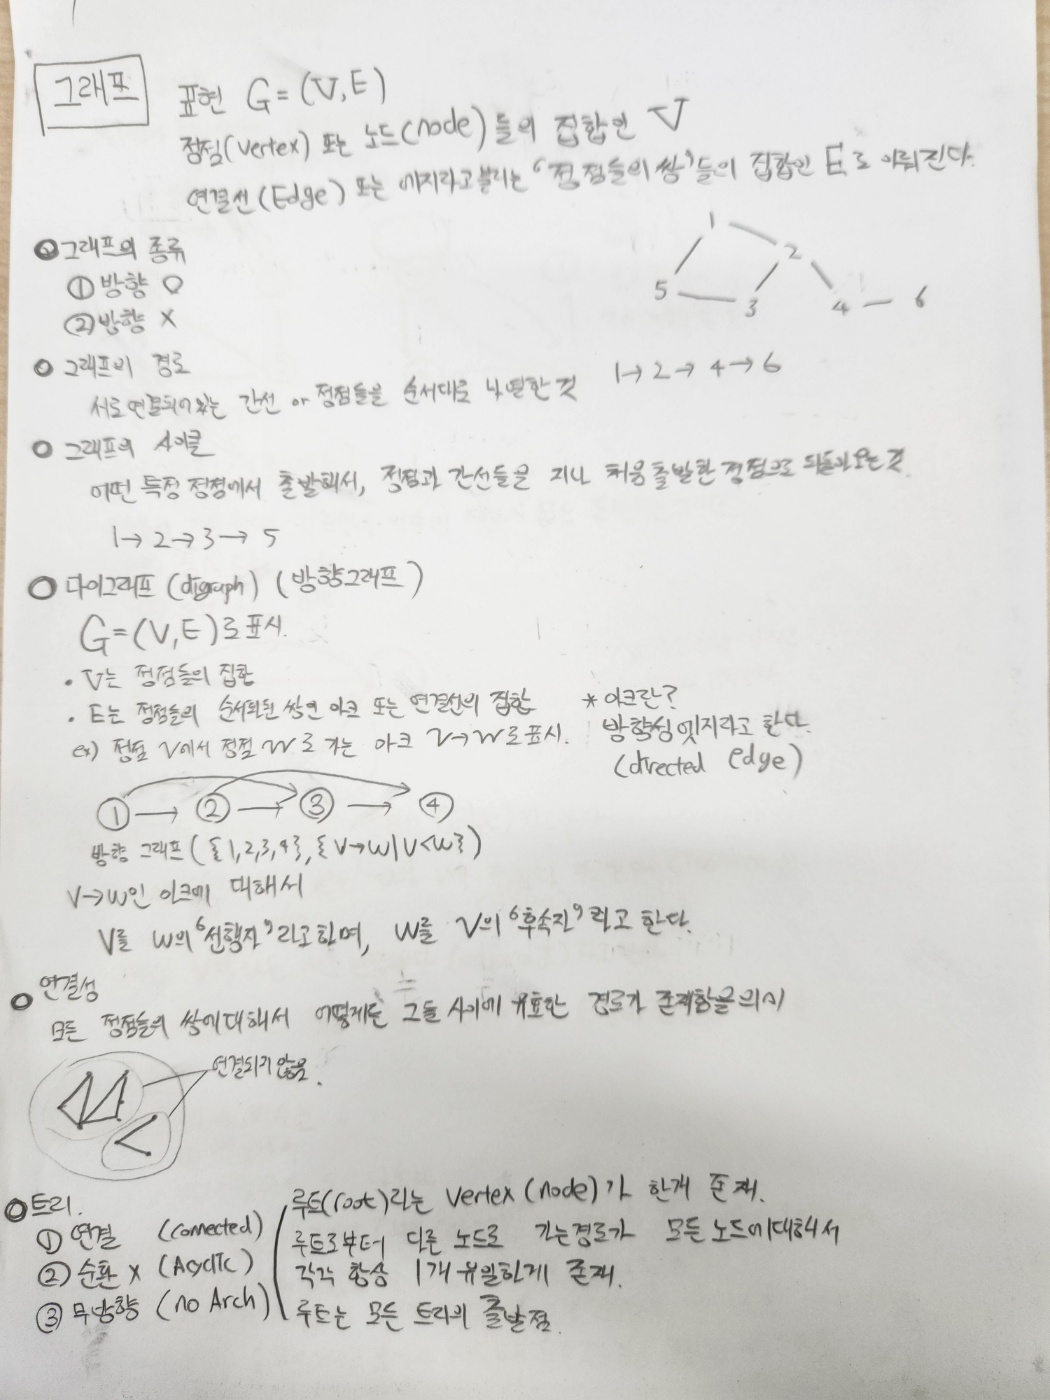 그래프
표현 G=(V,E)
정점(vertex) 또는 노드(node)들의 집합인 V
연결선(Edge) 또는 에지라고 불리는 '정점들의 쌍'들의 집합인 E로 이뤄진다.
그래프의 종류
① 방향 O
② 방향 X
1
2
5
3
4
6
그래프의 경로
1→2→4→6
서로 연결되어 있는 간선 or 정점들을 순서대로 나열한 것
그래프의 사이클
어떤 특정 정점에서 출발해서, 정점과 간선들을 지나 처음 출발한 정점으로 되돌아오는 것.
1→2→3→5
다이그래프 (digraph) (방향그래프)
G=(V,E)로 표시.
• V는 정점들의 집합
• E는 정점들의 순서화된 쌍인 아크 또는 연결선의 집합
ex) 정점 V에서 정점 W로 가는 아크 V→W로 표시.
* 아크란?
방향성 엣지라고 한다.
(directed edge)
① ② ③ ④
방향 그래프({1,2,3,4},{V→W|V<W})
V→W인 아크에 대해서
V를 W의 '선행자'라고하며, W를 V의 '후속자'라고 한다.
연결성
모든 정점들의 쌍에대해서 어떻게든 그들 사이에 유효한 경로가 존재함을 의미
연결되지 않음.
트리.
① 연결 (connected)
② 순환 X (Acyclic)
③ 무방향 (no Arch)
루트(root)라는 vertex (node)가 한개 존재.
루트로부터 다른 노드로 가는경로가 모든 노드에대해서
각각 항상 1개 유일하게 존재.
루트는 모든 트리의 출발점.